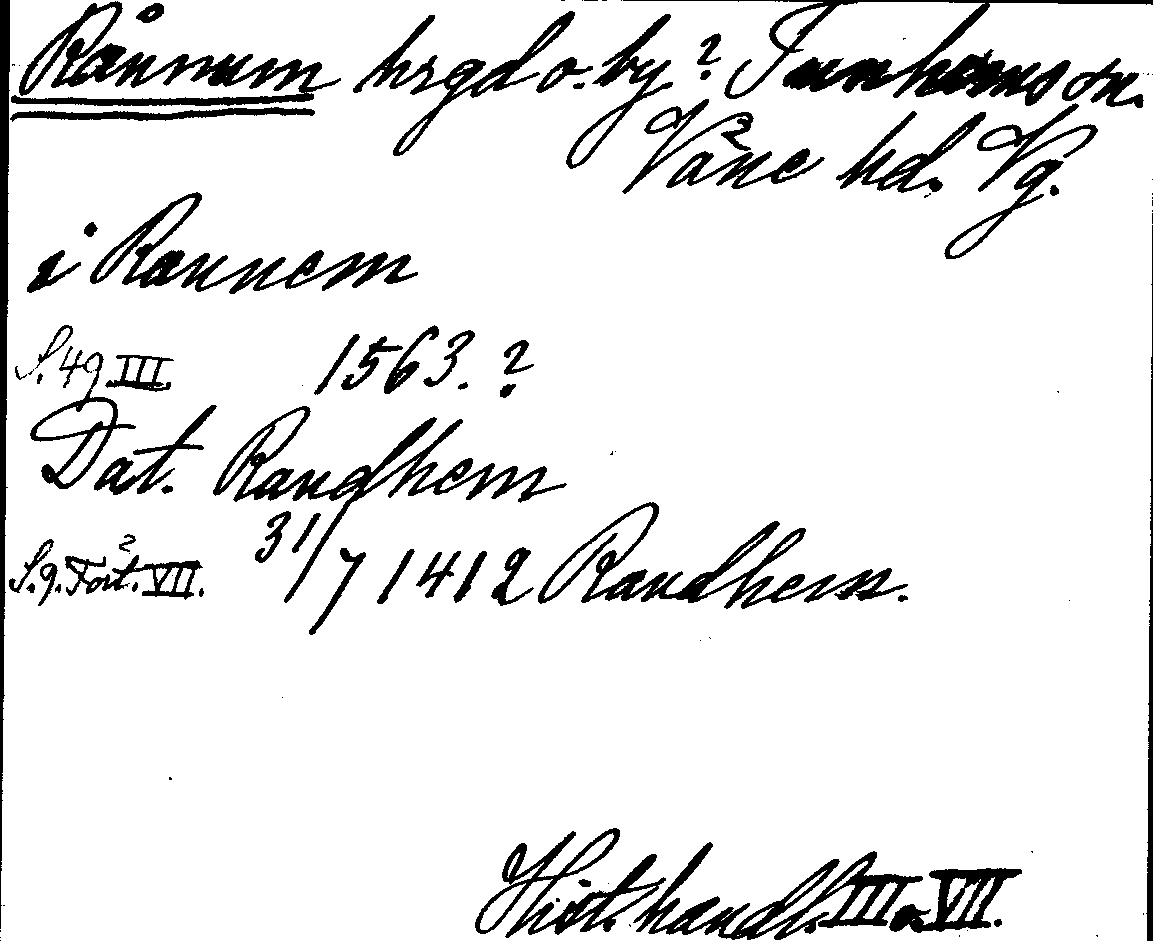 Rånnum hrgd o. by? Tunhems sn.
Våne hd. Vg.
i Rannem
S. 49 III 1563. ?
Dat. Randhem
S. 9. Fört.? VII. 31/7 1412 Randhem.
Hist. handl. III o. VII.